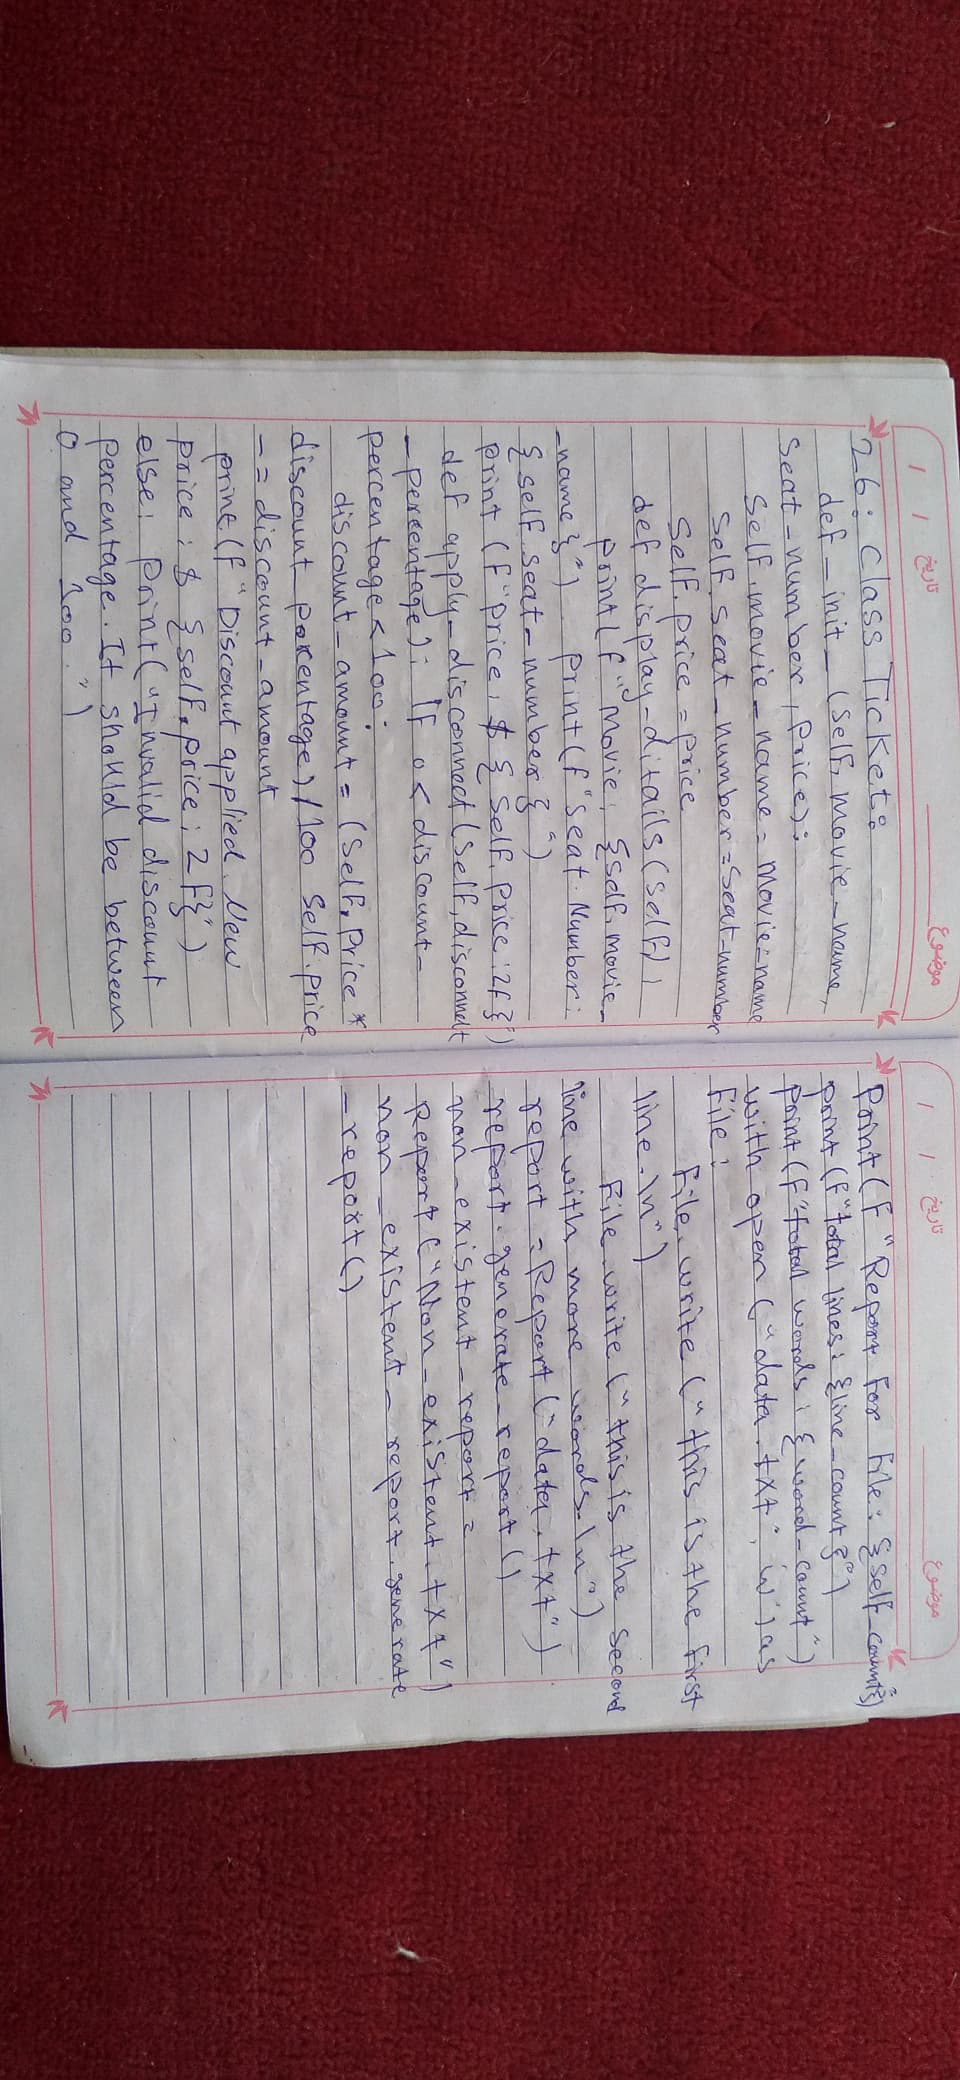 تاریخ / / موضوع
26: class Ticket:
def _ init _ (self, movie _ name,
Seat _ number, price):
Self. movie _ name = movie = name
Self. Seat _ number = Seat _ number
Self. price = price
def display _ ditails (self),
print (f "movie: {self. movie _
_ name}") print (f "Seat. Number:
{self. seat _ number}")
print (f "price, $ {self. price: 2f}")
def apply _ disconnect (self, disconnect
_ percentage): If 0 < discount _
percentage < 100:
discont _ amount = (self, price *
discount _ porcentage) / 100 Self. price
_ = discount _ amount
print (f "Discount applied. New
price: $ {self. price: 2f}")
else: print ("Invalid discount
percentage. It should be between
0 and 100.")
تاریخ / / موضوع
Print (f "Report for file: {self _ count}")
print (f "total lines: {line _ count}")
print (f "total words: {word _ count")
with open ("data. txt", 'w') as
file:
file. write ("this is the first
line. \n")
file. write ("this is the second
line with more words. \n")
report = Report ("data. txt")
report. generate _ report ()
non _ existent _ report =
Report ("Non _ existent. txt")
non _ existent _ report. generate
_ report ()